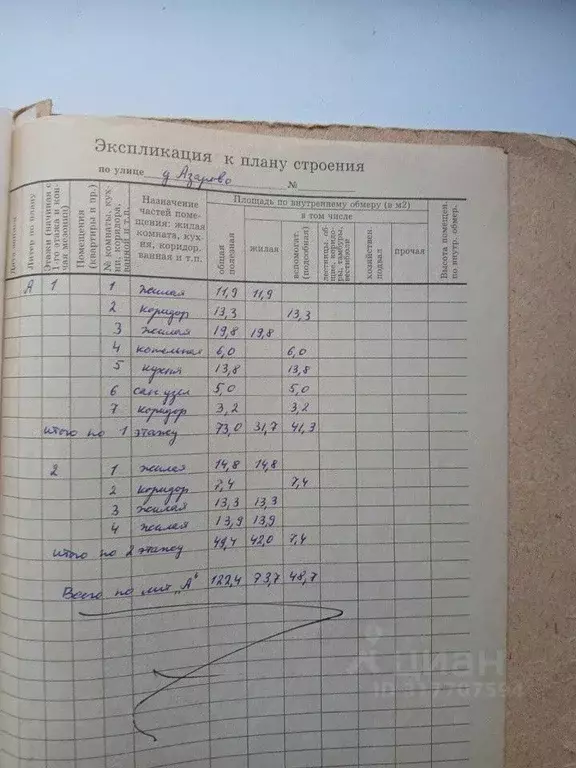 Экспликация к плану строения
по улице д Азарово №
Литер по плану
Этажи (начиная с 1-го этажа и кончая мезонин)
Помещения (квартиры и пр.)
№ комнаты, кухни, коридора, ванной и т.п.
Назначение частей помещения: жилая комната, кухня, коридор, ванная и т.п.
Площадь по внутреннему обмеру (в м2)
в том числе
общая полезная
жилая
вспомогат. (подсобная)
хозяйствен. подвал
прочая
Высота помещен. по внутр. обмер.
А 1 1 жилая 11,9 11,9
2 коридор 13,3 13,3
3 жилая 19,8 19,8
4 котельная 6,0 6,0
5 кухня 13,8 13,8
6 сан. узел 5,0 5,0
7 коридор 3,2 3,2
итого по 1 этажу 73,0 31,7 41,3
2 1 жилая 14,8 14,8
2 коридор 7,4 7,4
3 жилая 13,3 13,3
4 жилая 13,9 13,9
итого по 2 этажу 49,4 42,0 7,4
Всего по лит „А" 122,4 73,7 48,7
циан